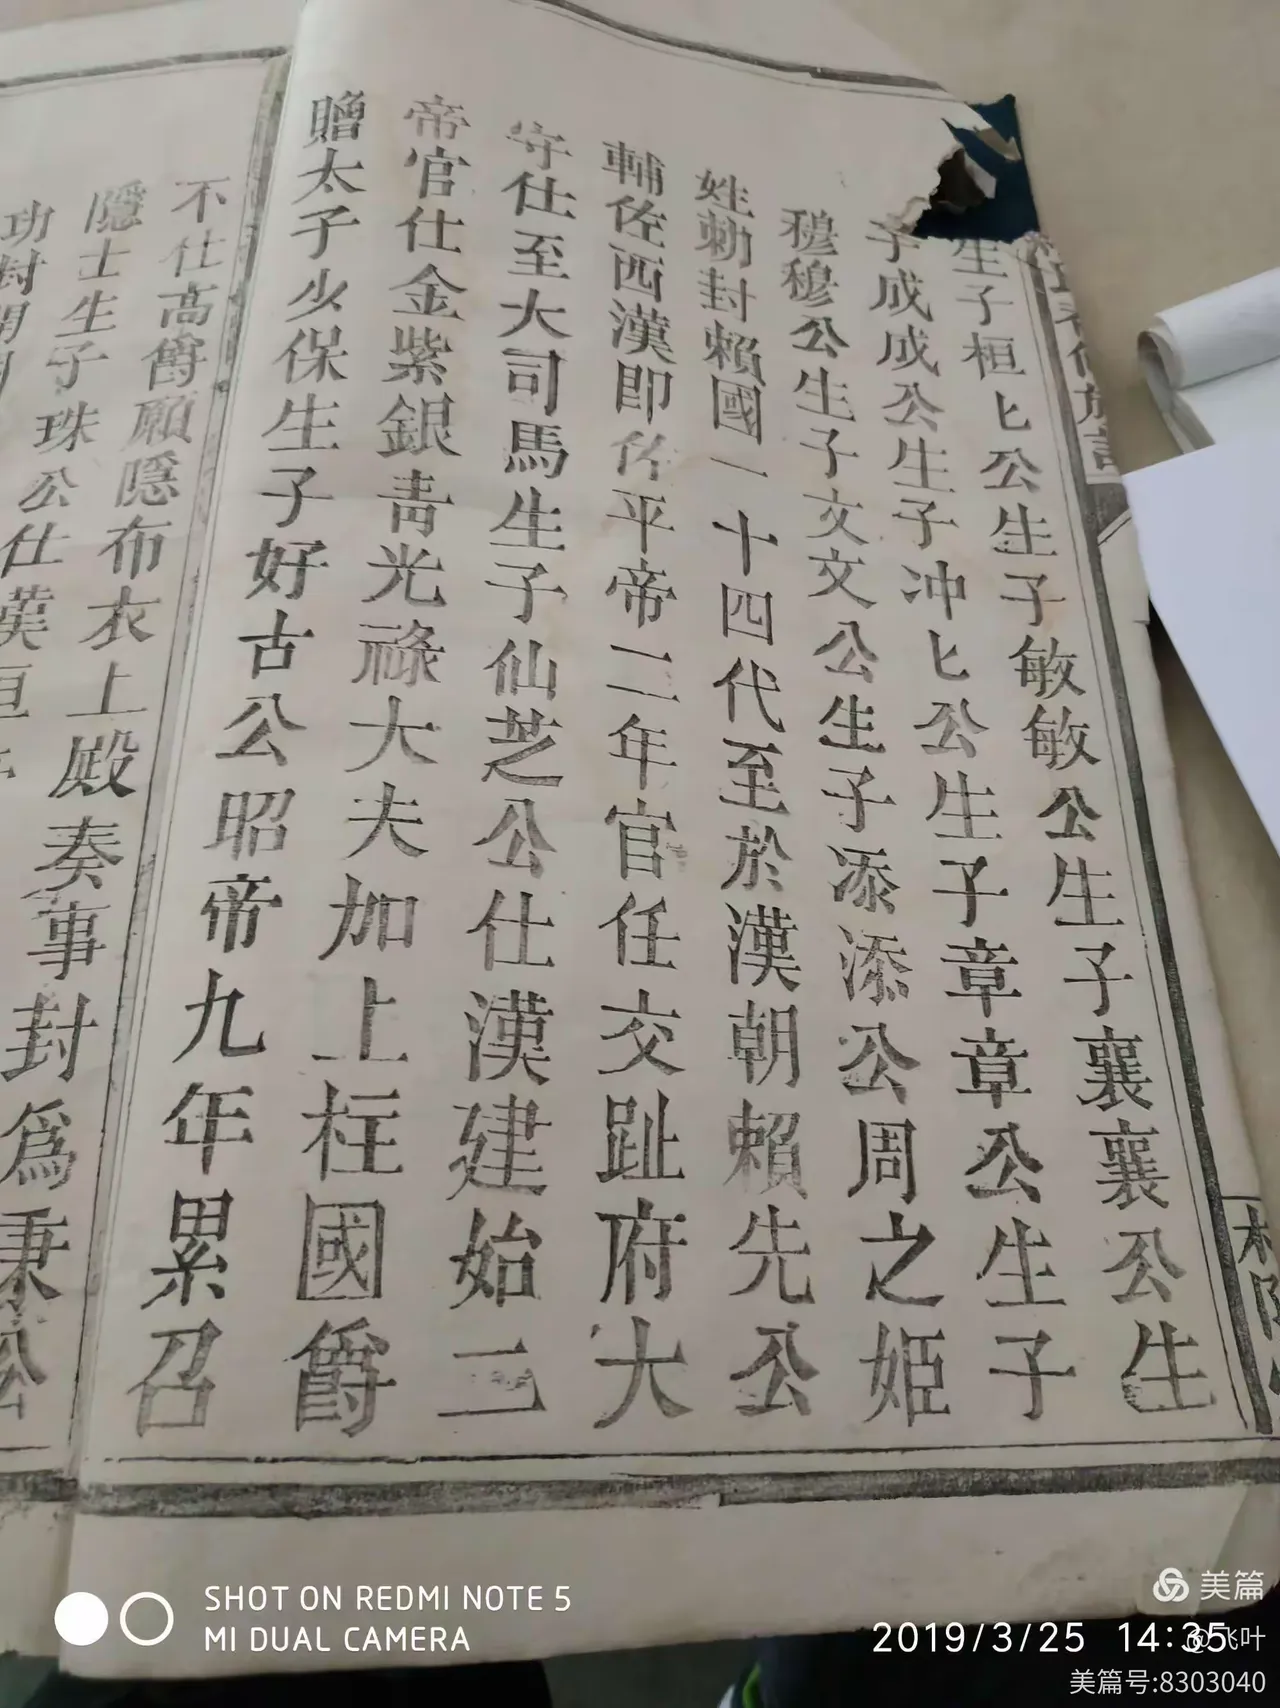 生子桓匕公生子敏敏公生子襄襄公生
子成成公生子冲匕公生子章章公生子
穆穆公生子文文公生子添添公周之姬
姓勅封賴國一十四代至於漢朝賴先公
輔佐西漢即佐平帝二年官任交趾府大
守仕至大司馬生子仙芝公仕漢建始二
帝官仕金紫銀青光祿大夫加上柱國爵
贈太子少保生子好古公昭帝九年累召
不仕高爵願隱布衣上殿奏事封為
隱士生子珠公仕漢
功封
SHOT ON REDMI NOTE 5
MI DUAL CAMERA
美篇
2019/3/25 14:35
飞叶
美篇号:8303040